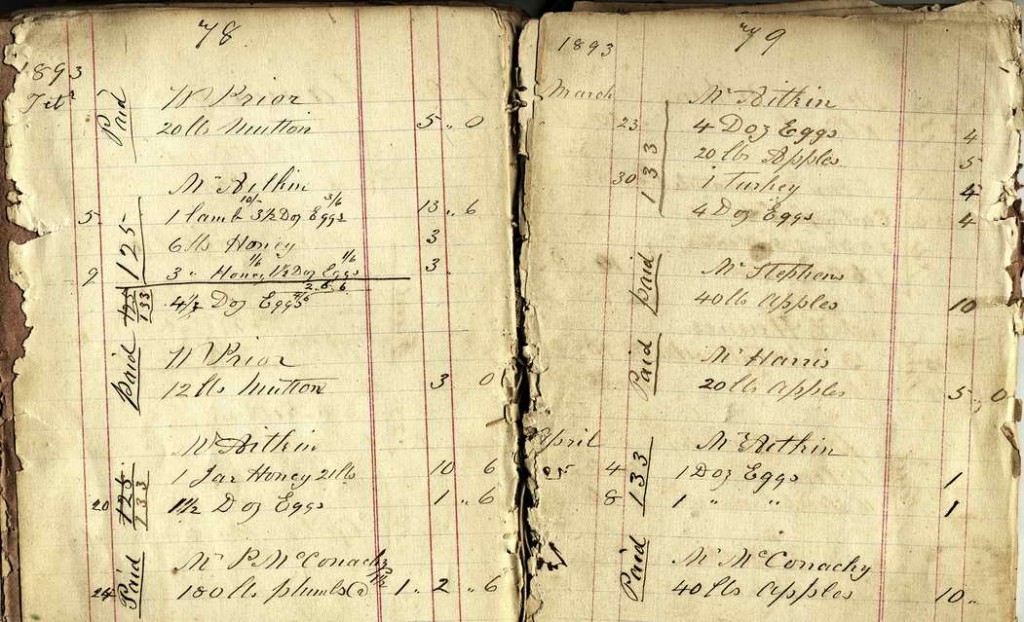 78
1893
Feb
Paid
W Prior
20 lbs Mutton 5 " 0
Mr Aitkin
10/- 3/6
5 125 1 lamb 3½ Doz Eggs 13 " 6
6 lbs Honey 3
1/6 1/6
9 3 " Honey 1½ Doz Eggs 3
2.5.6
125
133 4½ Doz Eggs 4/6
Paid
W Prior
12 lbs Mutton 3 0
Mr Aitkin
1 Jar Honey 21 lbs 10 6
20 125 133 1½ Doz Eggs 1 " 6
Paid
Mr P McConachy
24 180 lbs plumbs @ 1½ 1 " 2 " 6
79
1893
March
Mr Aitkin
23 133 4 Doz Eggs 4
20 lbs Apples 5
30 1 Turkey 4
4 Doz Eggs 4
paid
Mr Stephens
40 lb Apples 10
Paid
Mr Harris
20 lb Apples 5 " 0
April
Mr Aitkin
4 133 1 Doz Eggs 1
8 1 " " 1
Paid
Mr McConachy
40 lbs Apples 10 "